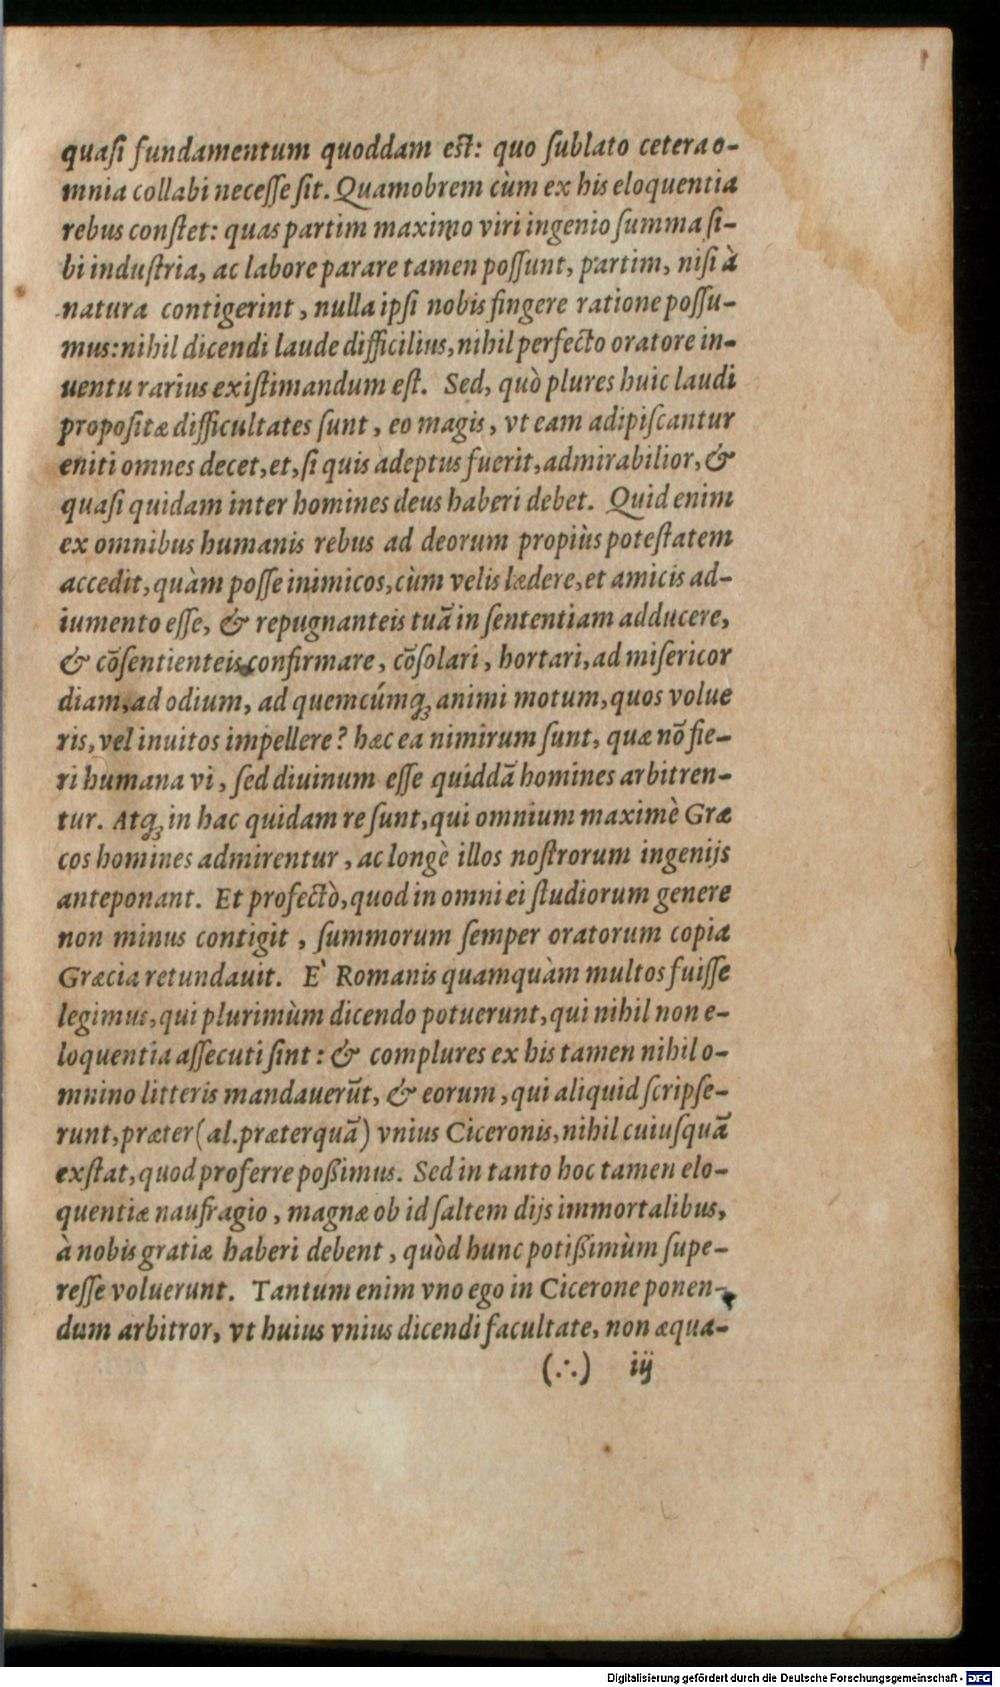 quaſi fundamentum quoddam eſt: quo ſublato cetera o-
mnia collabi neceſſe ſit. Quamobrem cùm ex his eloquentia
rebus conſtet: quas partim maximo viri ingenio ſumma ſi-
bi induſtria, ac labore parare tamen poſſunt, partim, niſi à
natura contigerint, nulla ipſi nobis fingere ratione poſſu-
mus: nihil dicendi laude difficilius, nihil perfecto oratore in-
uentu rarius exiſtimandum eſt. Sed, quò plures huic laudi
propoſitæ difficultates ſunt, eo magis, vt eam adipiſcantur
eniti omnes decet, et, ſi quis adeptus fuerit, admirabilior, &
quaſi quidam inter homines deus haberi debet. Quid enim
ex omnibus humanis rebus ad deorum propiùs poteſtatem
accedit, quàm poſſe inimicos, cùm velis lædere, et amicis ad-
iumento eſſe, & repugnanteis tuā in ſententiam adducere,
& cōſentienteis confirmare, cōſolari, hortari, ad miſericor
diam, ad odium, ad quemcúmq; animi motum, quos volue
ris, vel inuitos impellere? hæc ea nimirum ſunt, quæ nō fie-
ri humana vi, ſed diuinum eſſe quiddā homines arbitren-
tur. Atq; in hac quidam re ſunt, qui omnium maximè Græ
cos homines admirentur, ac longè illos noſtrorum ingenijs
anteponant. Et profectò, quod in omni ei ſtudiorum genere
non minus contigit, ſummorum ſemper oratorum copia
Græcia retundauit. E` Romanis quamquàm multos fuiſſe
legimus, qui plurimùm dicendo potuerunt, qui nihil non e-
loquentia aſſecuti ſint: & complures ex his tamen nihil o-
mnino litteris mandauerūt, & eorum, qui aliquid ſcripſe-
runt, præter (al. præterquā) vnius Ciceronis, nihil cuiuſquā
exſtat, quod proferre poßimus. Sed in tanto hoc tamen elo-
quentiæ naufragio, magnæ ob id ſaltem dijs immortalibus,
à nobis gratiæ haberi debent, quòd hunc potißimùm ſupe-
reſſe voluerunt. Tantum enim vno ego in Cicerone ponen-
dum arbitror, vt huius vnius dicendi facultate, non æqua-
(∴) iij
Digitalisierung gefördert durch die Deutsche Forschungsgemeinschaft - DFG